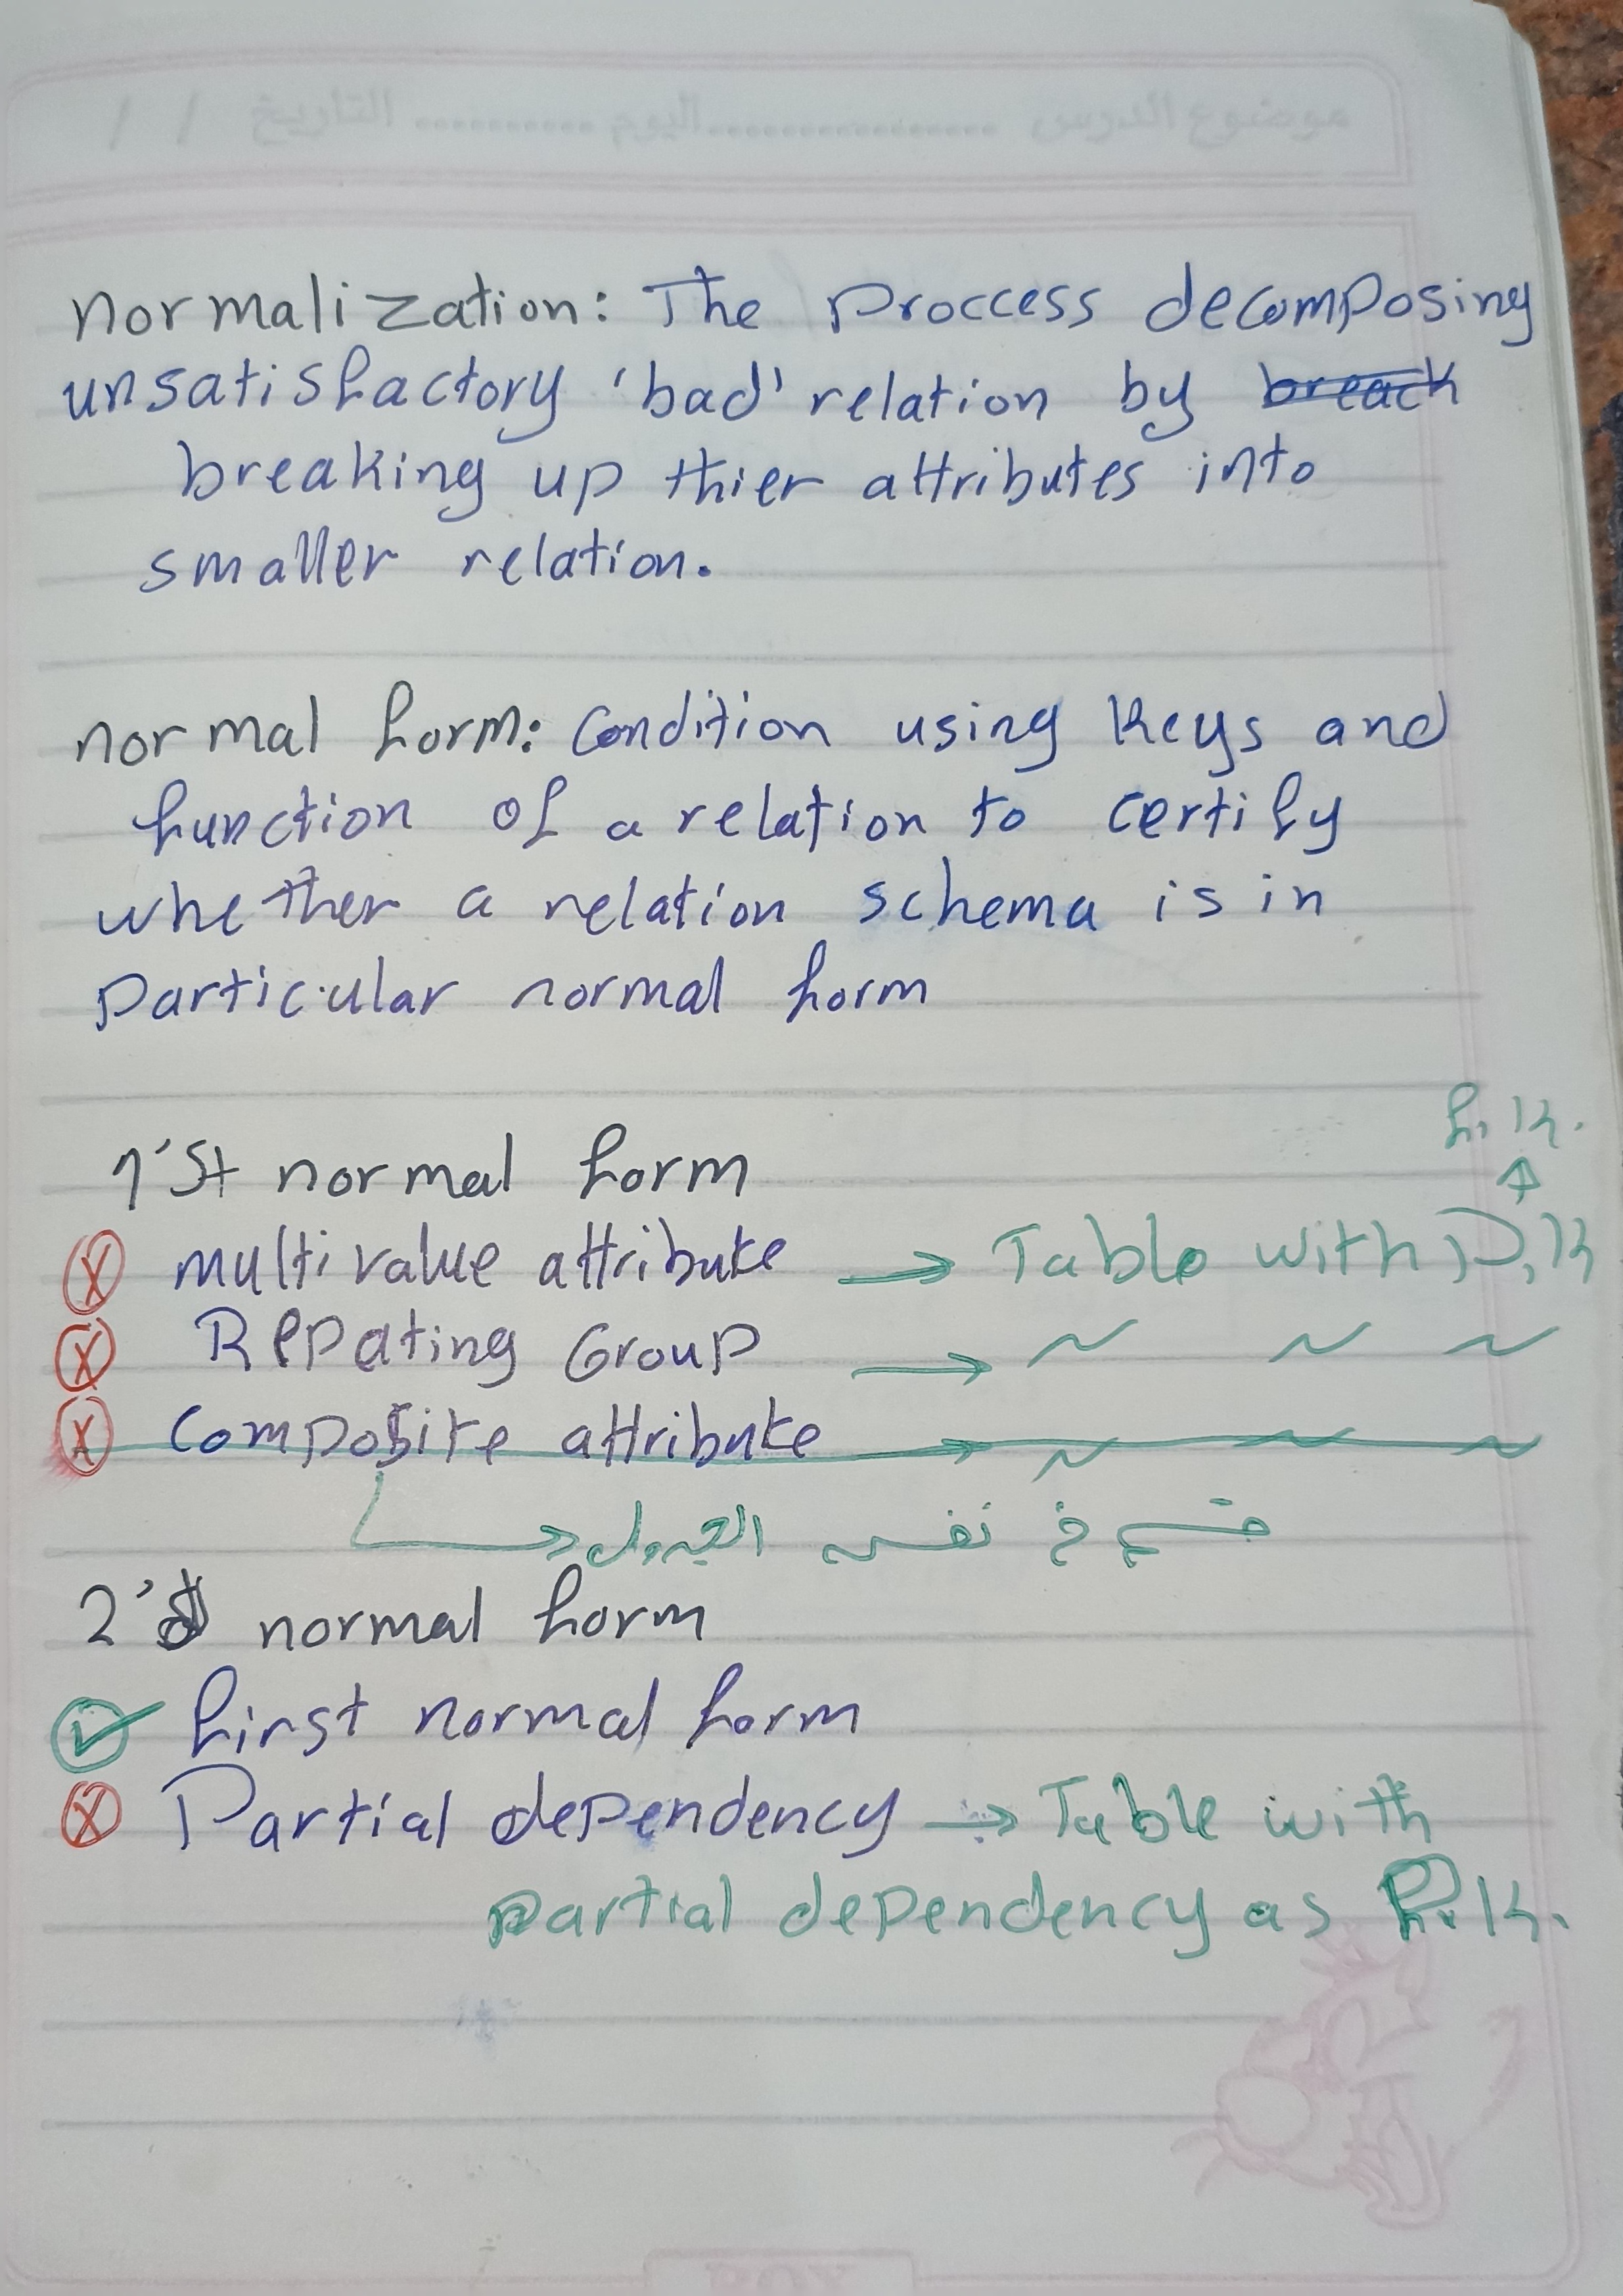 موضوع الدرس .................اليوم .......... التاريخ / /
normalization: The proccess decomposing
unsatisfactory 'bad' relation by breack
breaking up thier attributes into
smaller relation.
normal form: Condition using Keys and
function of a relation to certify
whether a relation schema is in
particular normal form
f.k.
1'st normal form
multivalue attribute → Table with P.k
Repating Group → ~ ~ ~
Composite attribute → ~ ~ ~
في نفس الجدول
2'd normal form
first normal form
Partial dependency → Table with
partial dependency as P.k.